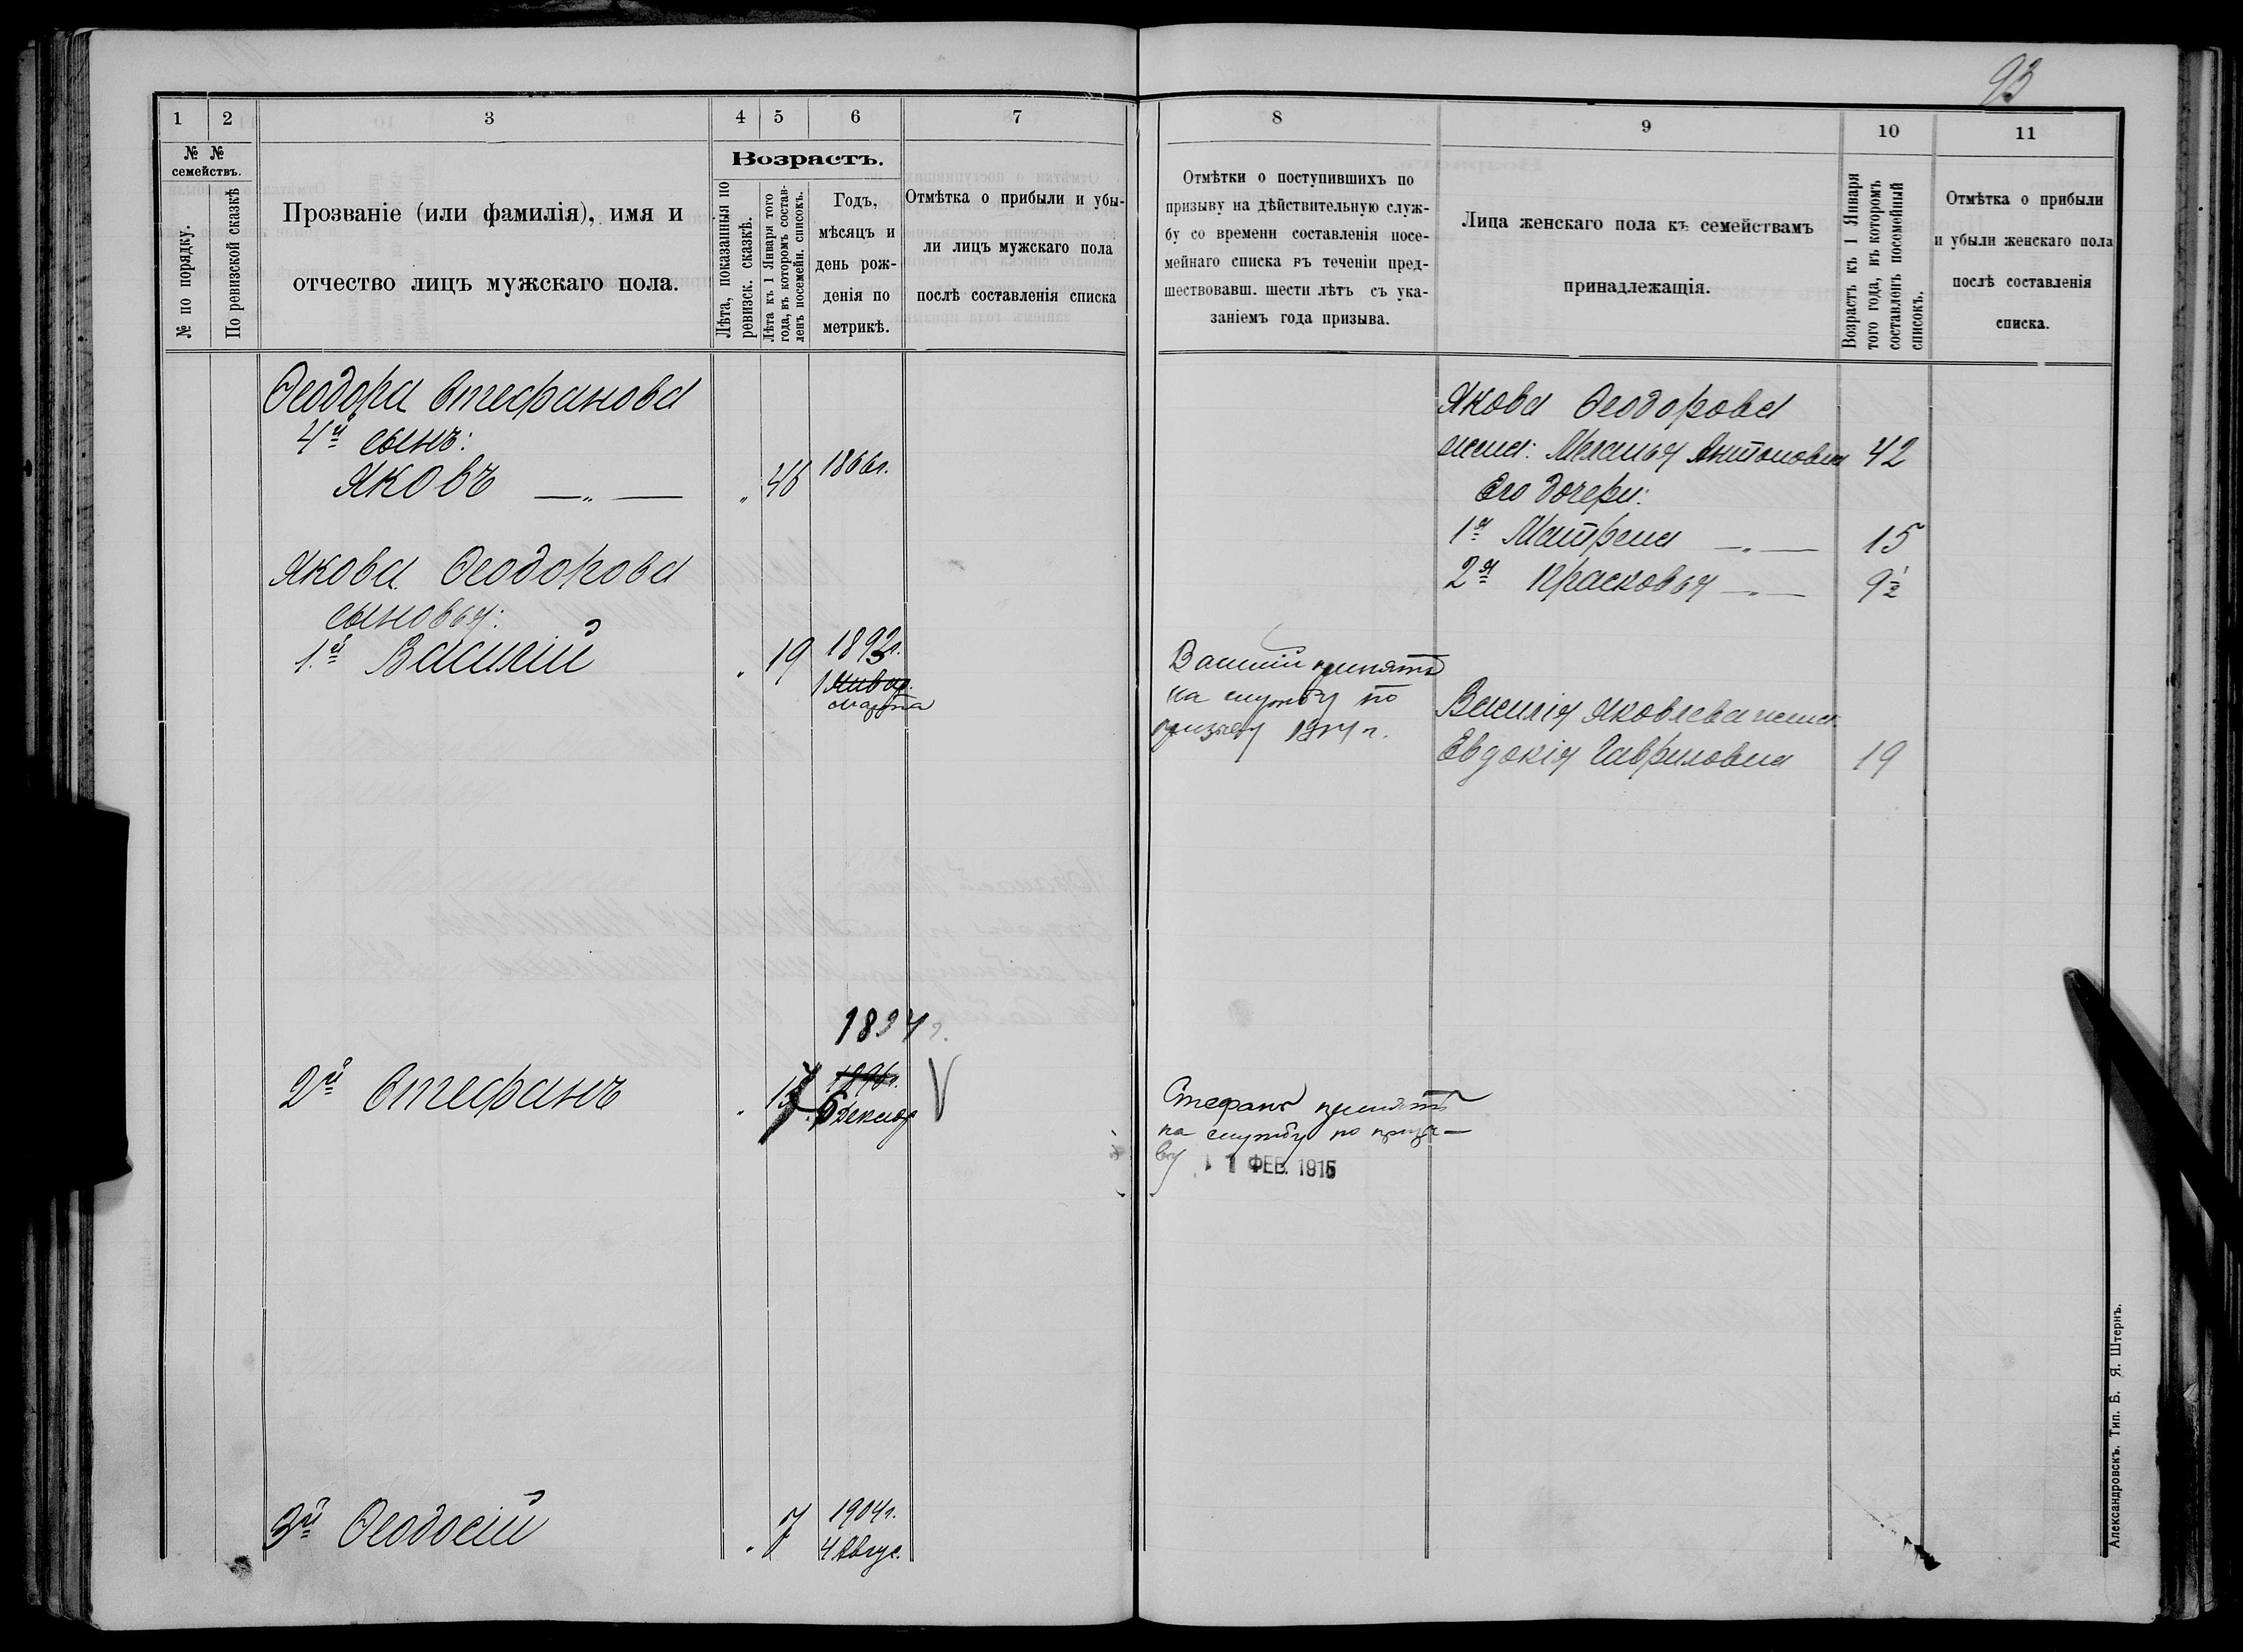 93
1 2 3 4 5 6 7
№ №
семействъ.
№ по порядку.
По ревизской сказкѣ
Прозваніе (или фамилія), имя и
отчество лицъ мужскаго пола.
Возрастъ.
Лѣта, показанныя по
ревизск. сказкѣ.
Лѣта къ 1 Января того
года, въ которомъ состав-
ленъ посемейн. списокъ.
Годъ,
мѣсяцъ и
день рож-
денія по
метрикѣ.
Отмѣтка о прибыли и убы-
ли лицъ мужскаго пола
послѣ составленія списка
Ѳеодора Стефанова
4й сынъ:
Яковъ —„— „ 46 1866г.
Якова Ѳеодорова
сыновья:
1.й Василій „ 19 1893г.
1 Январ.
марта
1894г.
2й Стефанъ „ 17 1896г.
6 Декабр V
3й Ѳеодосій „ 7 1904г.
4 Авгус.
8 9 10 11
Отмѣтки о поступившихъ по
призыву на дѣйствительную служ-
бу со времени составленія посе-
мейнаго списка въ теченіи пред-
шествовавш. шести лѣтъ съ ука-
заніемъ года призыва.
Лица женскаго пола къ семействамъ
принадлежащія.
Возрастъ къ 1 Января
того года, въ которомъ
составленъ посемейный
списокъ.
Отмѣтка о прибыли
и убыли женскаго пола
послѣ составленія
списка.
Якова Ѳеодорова
жена: Меланья Антоновна 42
Его дочери:
1я Матрена —„— 15
2я Прасковья —„— 9½
Василій принятъ
на службу по
призыву 1914 г.
Василія Яковлева жена
Евдокія Гавриловна 19
Стефанъ принятъ
на службу по призы-
ву 1 ФЕВ. 1915
Александровскъ. Тип. Б. Я. Штернъ.